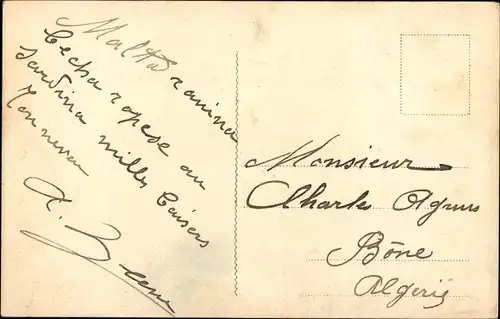 Malta ranina
Cecha ropese au
Jardina milles baisers
Ton neveu
A.
Monsieur
Charles Agius
Bône
Algérie